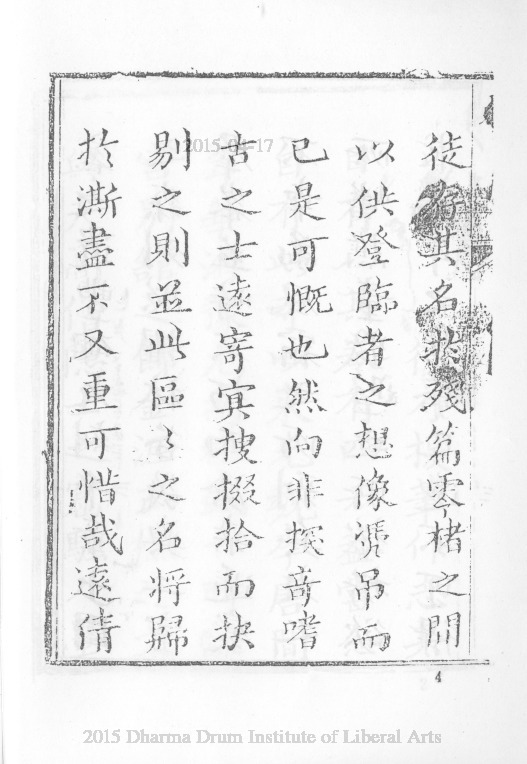 徒存其名於殘篇零楮之間
以供登臨者之想像憑吊而
已是可慨也然向非探奇嗜
古之士遠寄冥搜掇拾而抉
剔之則並此區〻之名將歸
於澌盡不又重可惜哉遠倩
4
2015-04-17
2015 Dharma Drum Institute of Liberal Arts